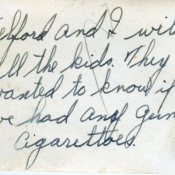 elford and I wil
ll the kids. They
wanted to know if
ve had any Gum
Cigarettoes.